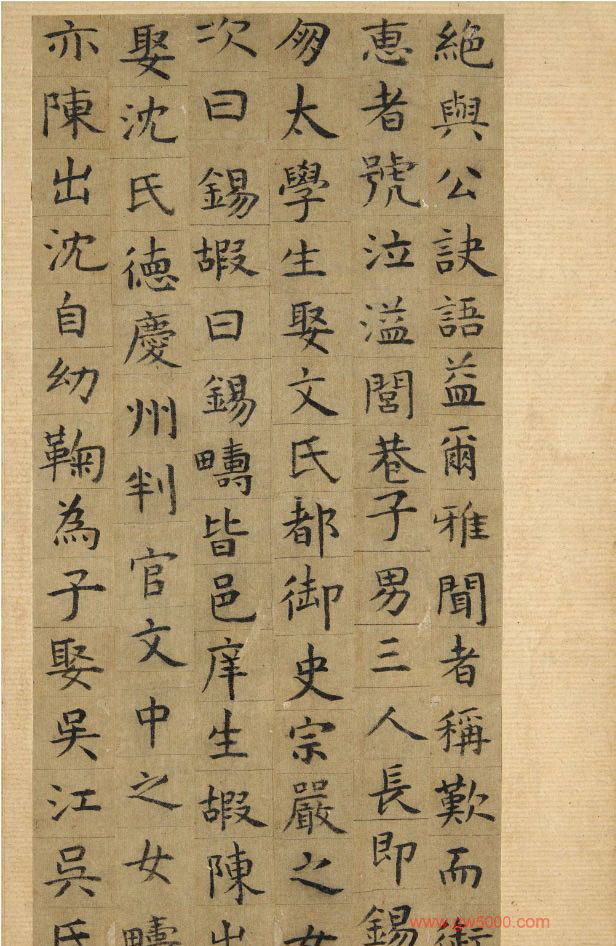 絶與公訣語益爾雅聞者稱歎而
恵者號泣溢閭巷子男三人長即錫
太學生娶文氏都御史宗嚴之女
次曰錫嘏曰錫疇皆邑庠生嘏陳出
娶沈氏德慶州判官文中之女疇
亦陳出沈自幼鞠為子娶吳江吳氏
www.gw5000.com